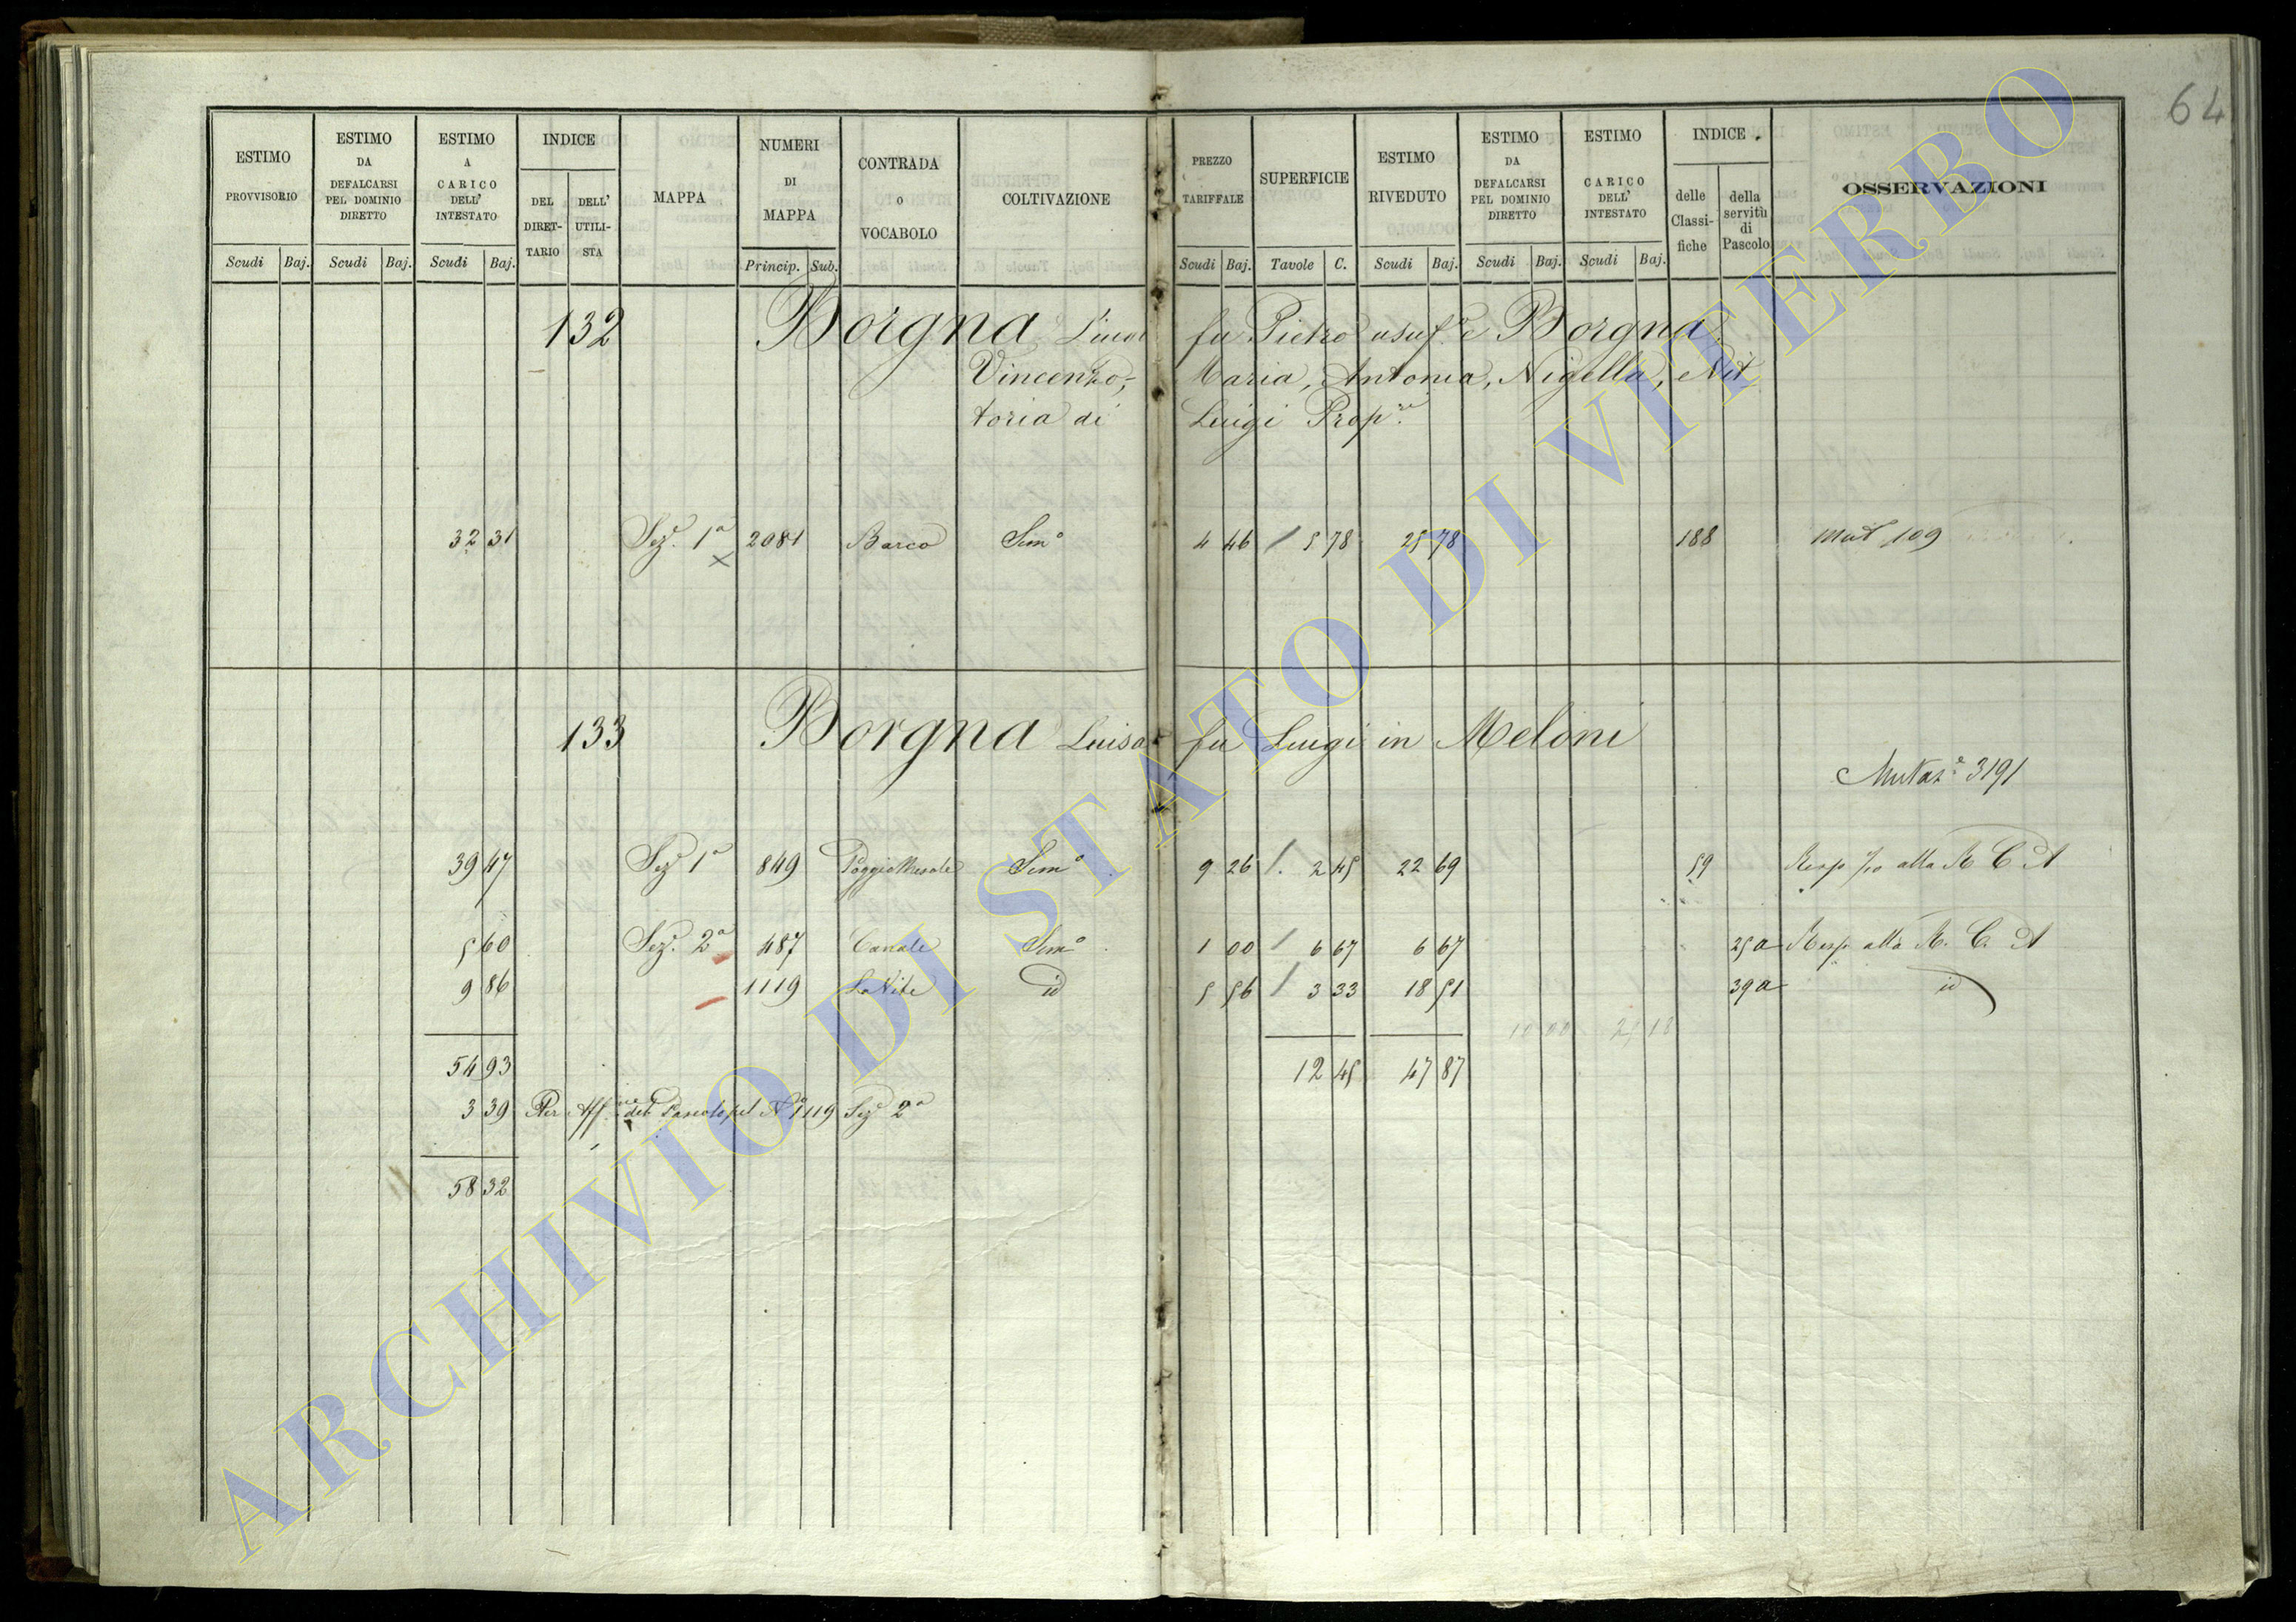 64
ESTIMO PROVVISORIO Scudi Baj.
ESTIMO DA DEFALCARSI PEL DOMINIO DIRETTO Scudi Baj.
ESTIMO A CARICO DELL' INTESTATO Scudi Baj.
INDICE DEL DIRET-TARIO DELL' UTILI-STA
MAPPA
NUMERI DI MAPPA Princip. Sub.
CONTRADA o VOCABOLO
COLTIVAZIONE
PREZZO TARIFFALE Scudi Baj.
SUPERFICIE Tavole C.
ESTIMO RIVEDUTO Scudi Baj.
ESTIMO DA DEFALCARSI PEL DOMINIO DIRETTO Scudi Baj.
ESTIMO A CARICO DELL' INTESTATO Scudi Baj.
INDICE delle Classi-fiche della servitù di Pascolo
OSSERVAZIONI
132 Borgna fu Pietro usuf.e e Borgna
Vincenzo, Maria, Antonia, Nigella, e Vit
toria di Luigi Prop.re
32 31 Sez.e 1a 2081 Barco Sem.o 4 46 5 78 25 78 188 Mut 109
133 Borgna Luisa fu Luigi in Meloni
Mutaz.e 3191
39 47 Sez.e 1a 849 Sem.o 9 26 2 45 22 69 59 Resp alla R C A
5 60 Sez.e 2a 487 Canale Sem.o 1 00 6 67 6 67 25a Resp alla R. C. A
9 86 1119 La Vite id 5 56 3 33 18 51 39a id
54 93 12 45 47 87
3 39 Per Aff.ne del Pascolo pel No 1119 Sez.e 2a
58 32
ARCHIVIO DI STATO DI VITERBO